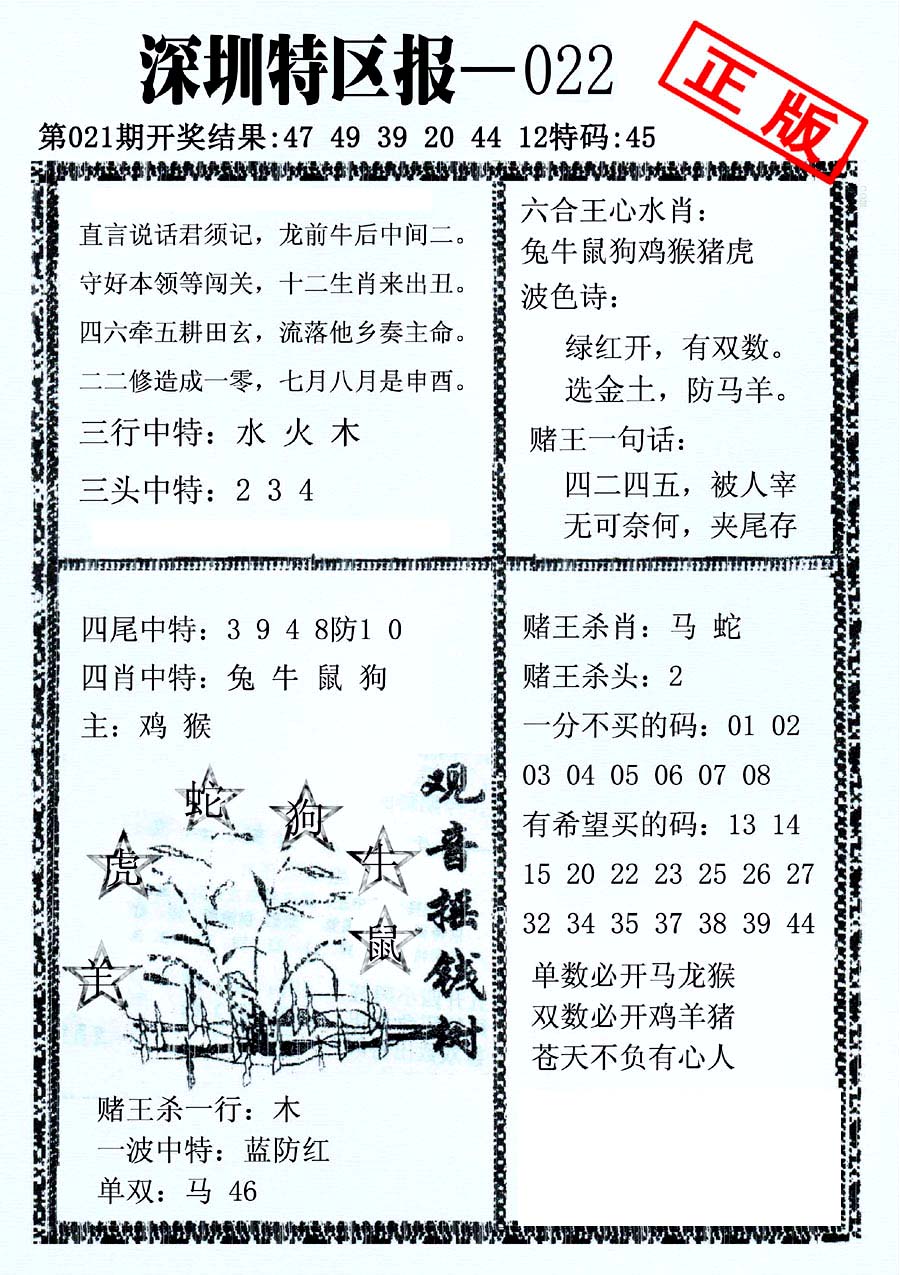 深圳特区报—022
正版
第021期开奖结果:47 49 39 20 44 12特码:45
直言说话君须记，龙前牛后中间二。
守好本领等闯关，十二生肖来出丑。
四六牵五耕田玄，流落他乡奏主命。
二二修造成一零，七月八月是申酉。
三行中特：水 火 木
三头中特：2 3 4
六合王心水肖：
兔牛鼠狗鸡猴猪虎
波色诗：
绿红开，有双数。
选金土，防马羊。
赌王一句话：
四二四五，被人宰
无可奈何，夹尾存
四尾中特：3 9 4 8防1 0
四肖中特：兔 牛 鼠 狗
主：鸡 猴
蛇
狗
虎
牛
鼠
羊
观音摇钱树
赌王杀一行：木
一波中特：蓝防红
单双：马 46
赌王杀肖：马 蛇
赌王杀头：2
一分不买的码：01 02
03 04 05 06 07 08
有希望买的码：13 14
15 20 22 23 25 26 27
32 34 35 37 38 39 44
单数必开马龙猴
双数必开鸡羊猪
苍天不负有心人